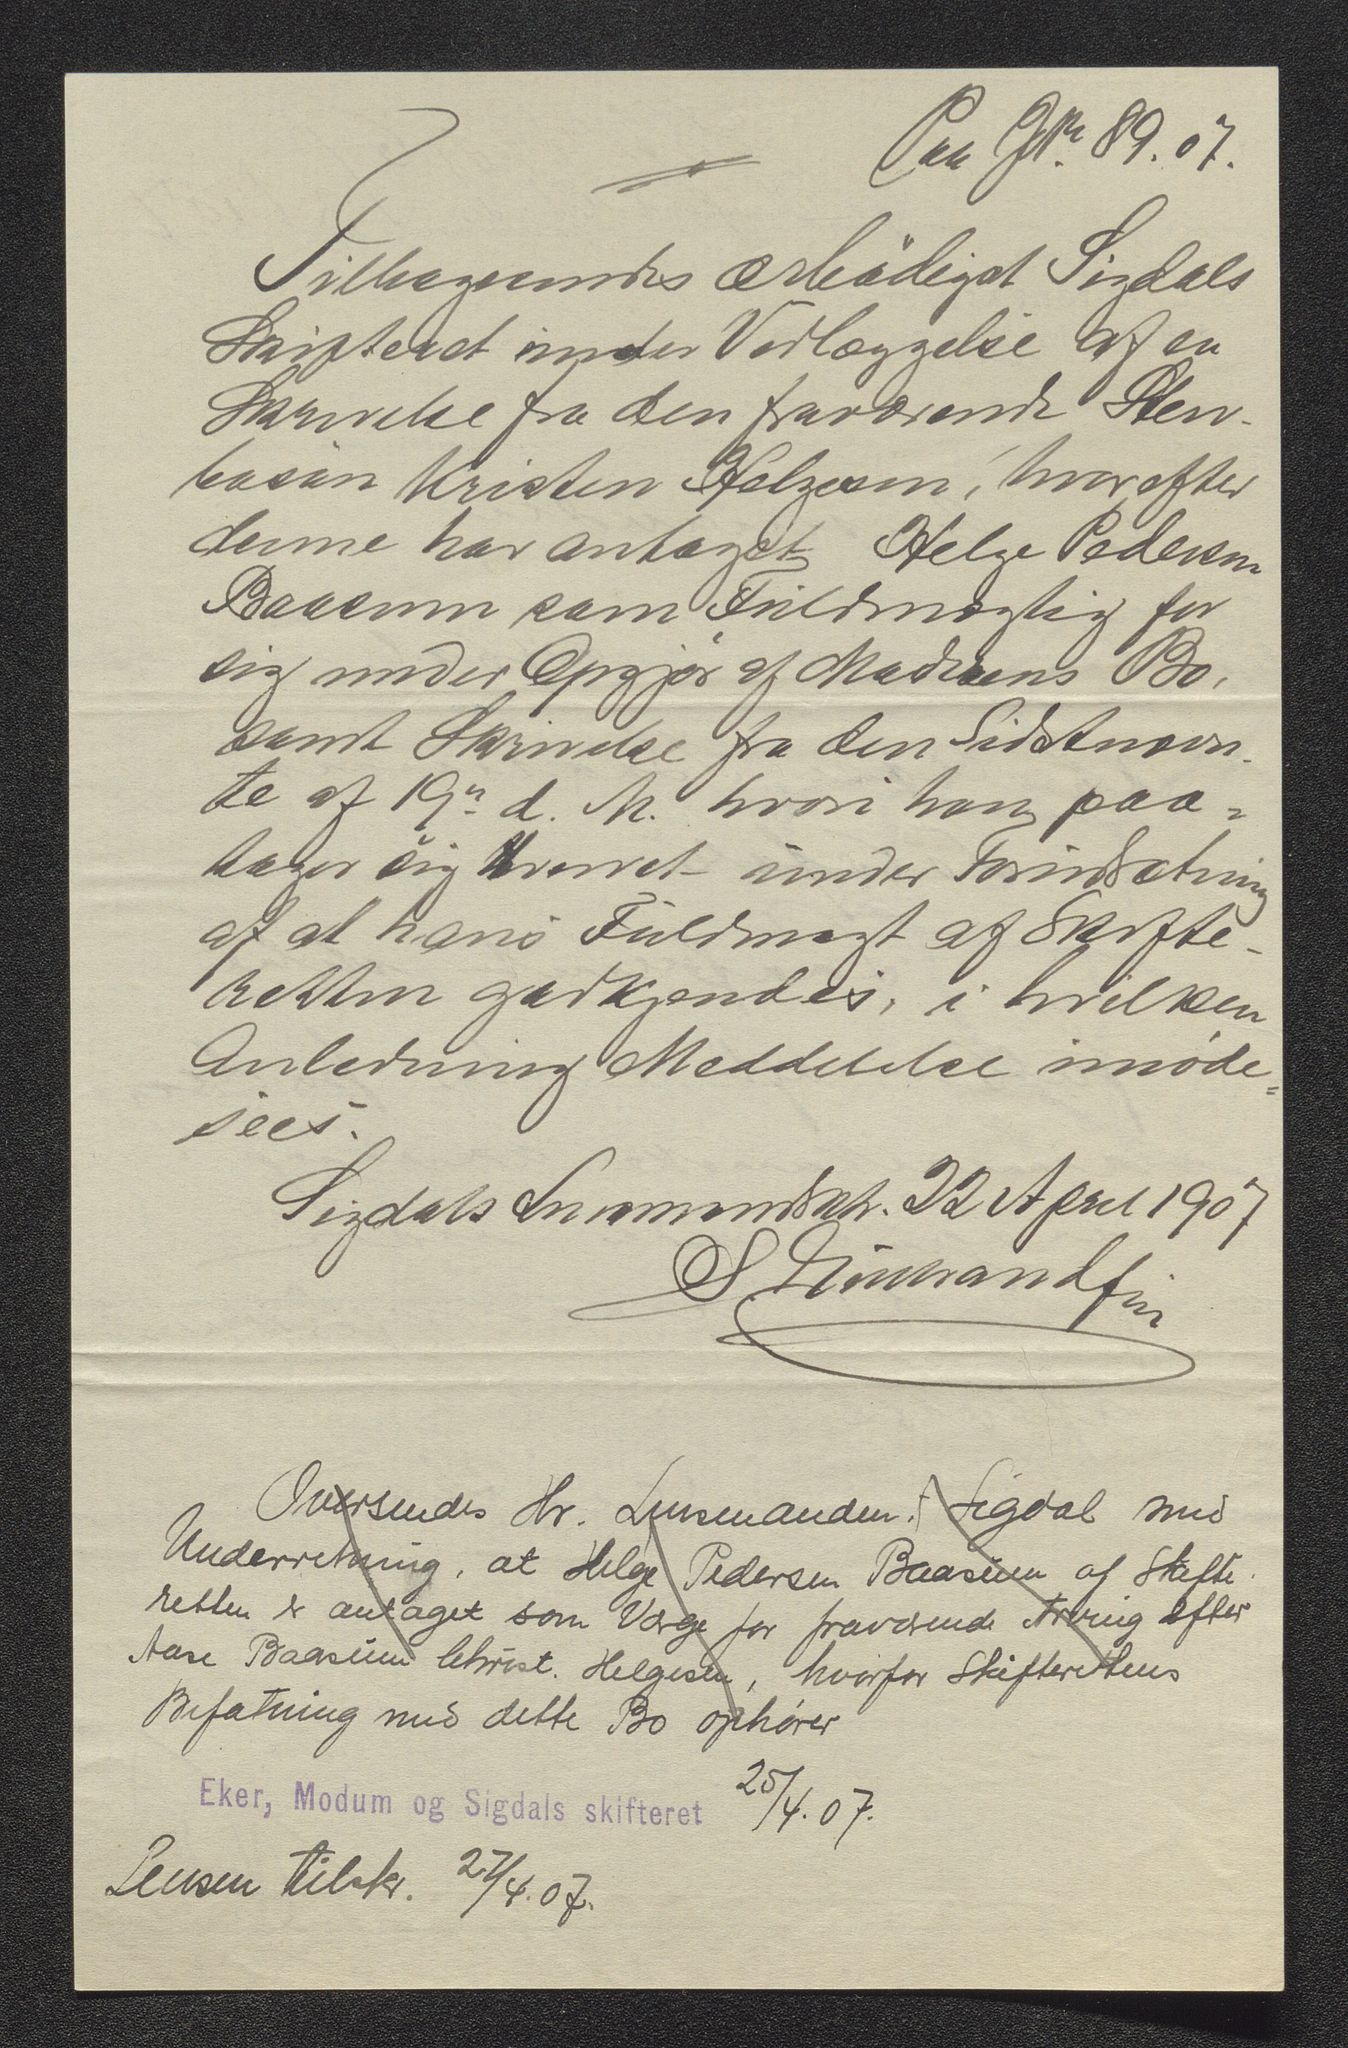 Paa JNr. 89.07.
Tilbagesendes ærbødigst Sigdals
Skifteret under Vedlæggelse af en
Skrivelse fra den fraværende Sten-
busön Kristen Helgesen, hvorefter
denne har antaget Helge Pedersen
Baasum som Fuldmægtig for
sig under Opgjør af Moderens Bo,
samt Skrivelse fra den Sidstnævn-
te af 19n d. M. hvori han paa-
tager sig Hvervet under Forudsætning
af at hans Fuldmagt af Skifte-
retten godkjendes, i hvilken
Anledning Meddelelse imøde-
sees.
Sigdals Lensmandsktr. 22 April 1907
S.
Oversendes Hr. Lensmanden i Sigdal med
Underretning, at Helge Pedersen Baasum af Skifte-
retten er antaget som Værge for fraværende Arving efter
Aase Baasum Christ. Helgesen, hvorfor Skifterettens
Befatning med dette Bo ophører
Eker, Modum og Sigdals skifteret 25/4.07.
Lensm tilskr. 27/4.07.